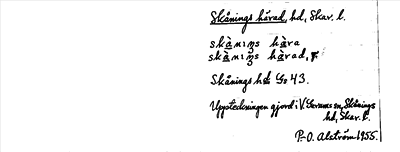 Skånings härad, hd, Skar. l.
skànɩŋs hä̀ra
skànɩŋs hä̀rad,
Skånings hd Go 43.
Uppteckningen gjord i V. Gerums sn, Skånings
hd, Skar. l.
P.-O. Alström 1955.